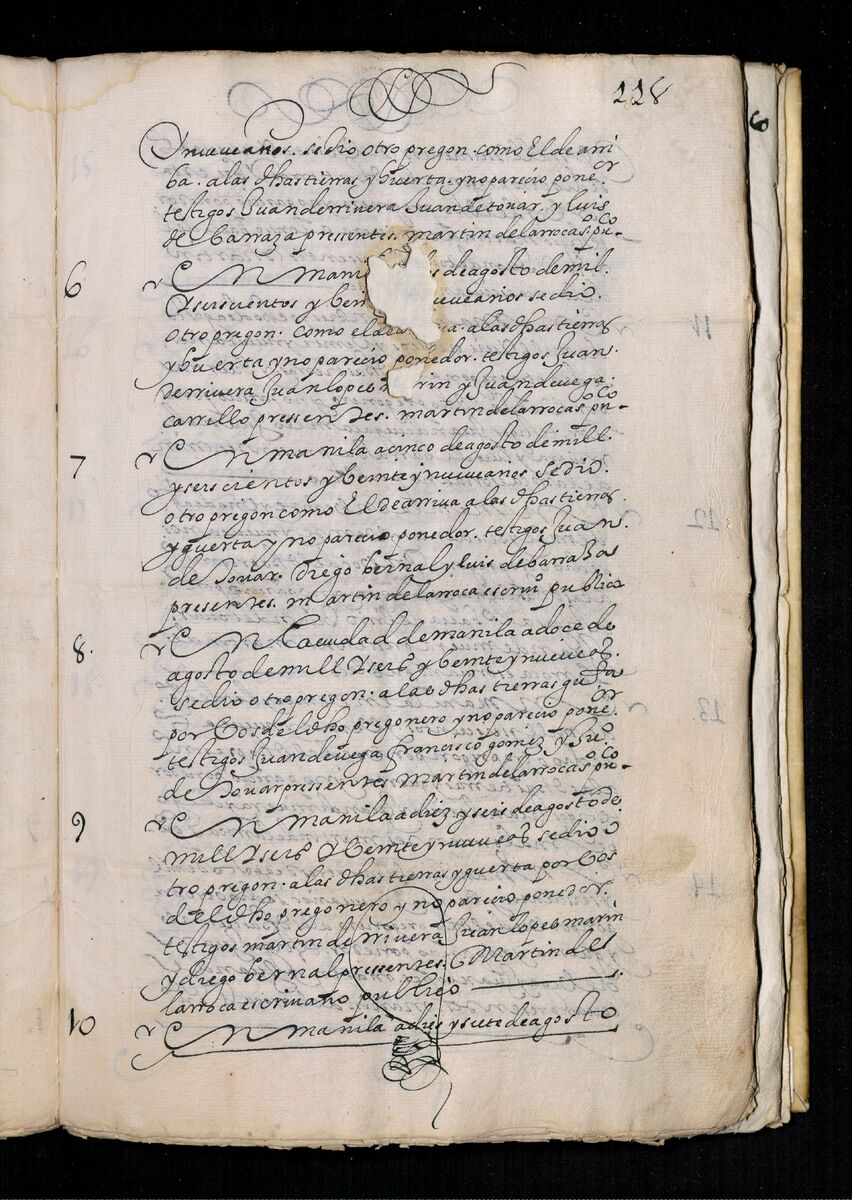 118
Ynueueaños. sedio otro pregon. como El de arri
ba. alas dhas tierras y huerta. y no parecio pone.or
testigos Juan derrivera Juan de tovar. y luis
de barraza pressentes. martin de larroca sno. puco
6 En mani s de agosto de mil.
Y seiscientos y bein nueueaños se dio.
otro pregon. como el de a a. alas dhas tierras
y huerta y no parecio ponedor. testigos Juan.
derrivera Juan lopes rin y Juan de vega.
carrillo pressentes. martin de larroca sno. puco
7 En manila a cinco de agosto de mill.
y seiscientos y beinte y nueueaños se dio.
otro pregon como El de arriva alas dhas tierras.
y guerta y no parecio ponedor. testigos Juan.
de Tovar. Diego bernal y luis de barrahas
presentes. martin de larroca escriuo publico
8. En La ciudad de manila a doce de
agosto de mill Y seiso y beinte y nueueas.
se dio otro pregon. alas dhas tierras guta
por bos del dho pregonero y no parecio pone.or
testigos Juan de vega francisco gomez y Juo
de Tovar pressentes martin de larroca sno. puco
9 En manila a diez y seis de agosto de
mill Y seiso Y beinte y nueueas se dio o
tro pregon. alas dhas tierras y guerta por bos
del dho pregonero y no parecio ponedor.
testigos martin de rrivera Juan lopes marin
y diego bernal pressentes. Martin de
larroca escrivano publico
10 En manila a dies y siete de agosto